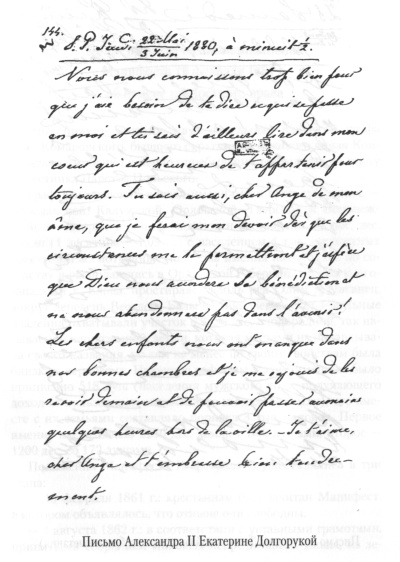 144.
S. P. Jeudi 22 Mai / 3 Juin 1880, à minuit ½.
Nous nous connaissons trop bien pour
que j'aie besoin de te dire ce qui se passe
en moi et tu sais d'ailleurs lire dans mon
coeur qui est heureux de t'appartenir pour
toujours. Tu sais aussi, cher Ange de mon
âme, que je ferai mon devoir dès que les
circonstances me le permettront et j'espère
que Dieu nous accordera Sa bénédiction et
ne nous abandonnera pas dans l'avenir!
Les chers enfants nous ont manqué dans
nos bonnes chambres et je me réjouis de les
revoir demain et de pouvoir passer au moins
quelques heures hors de la ville. – Je t'aime,
cher Ange et t'embrasse bien tendre-
ment.
Письмо Александра II Екатерине Долгорукой